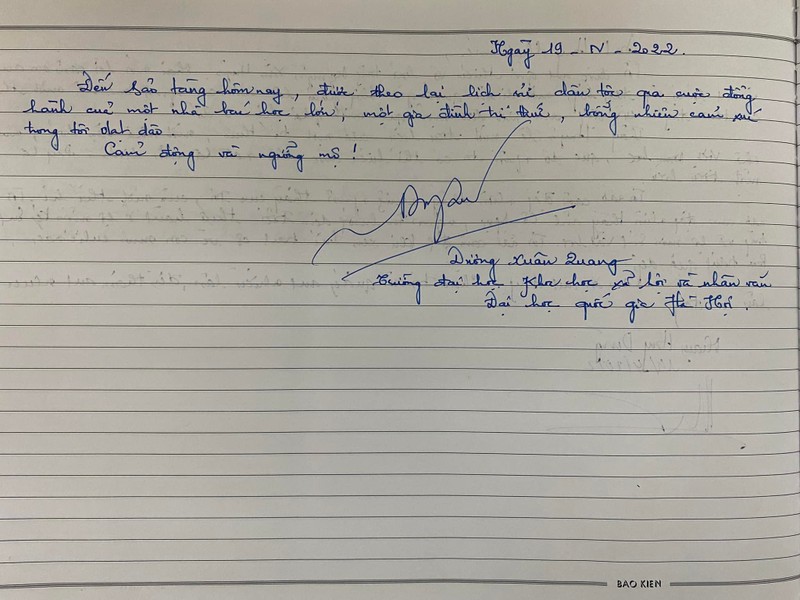 Ngày 19 - IV - 2022.
Đến bảo tàng hôm nay, được theo lại lịch sử dân tộc qua cuộc đồng
hành của một nhà bác học lớn, một gia đình trí thức, bỗng nhiên cảm xúc
trong tôi dạt dào.
Cảm động và ngưỡng mộ!
Dương Xuân Quang
Trường đại học Khoa học xã hội và nhân văn
Đại học quốc gia Hà Nội.
BAO KIEN